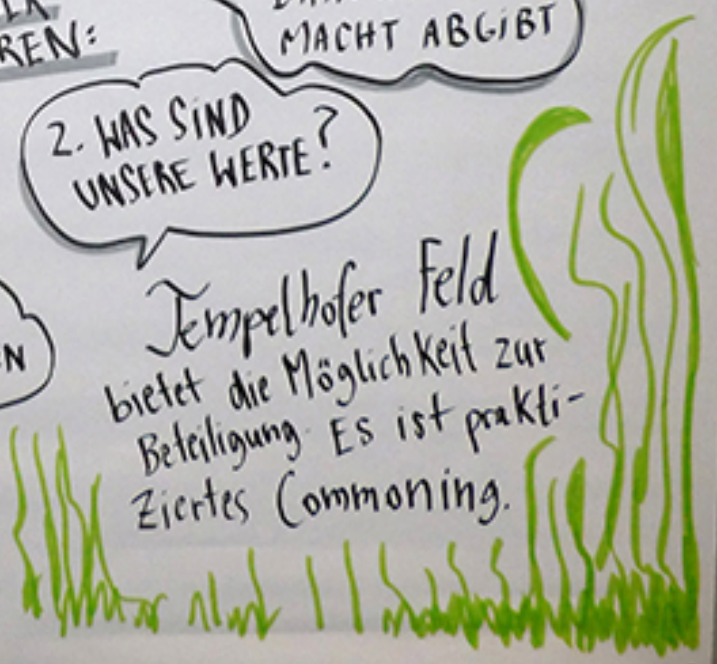 REN:
MACHT ABGIBT
2. WAS SIND
UNSERE WERTE?
Tempelhofer Feld
bietet die Möglichkeit zur
Beteiligung. Es ist prakti-
ziertes Commoning.
N